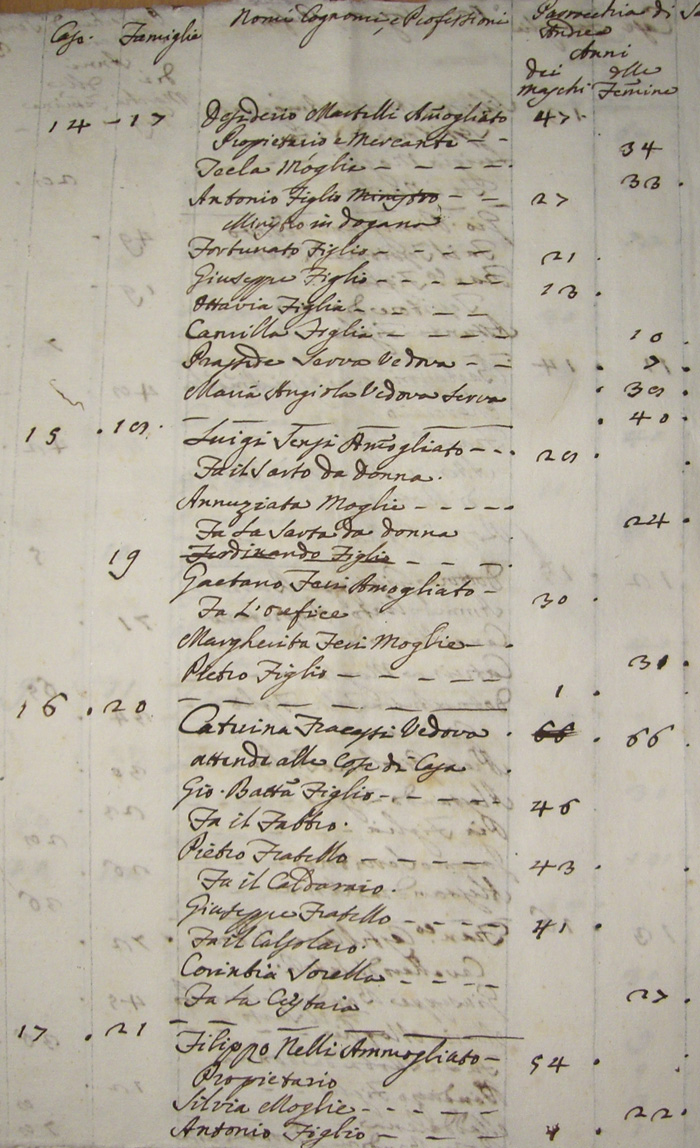 Case. Famiglie Nomi Cognomi, e Professioni Parrocchia di
Andrea
Anni
dei delle
maschi Femine
14 - 17 Desiderio Martelli Amogliato 47
Propietario e Mercante - - 34
Tecla Moglie - - - - 33
Antonio Figlio Ministro - - 27
Ministro in dogana
Fortunato Figlio - - - - 21
Giuseppe Figlio - - - - 13
Ottavia Figlia - - - -
Camilla Figlia - - - - 10
Prasside Serva Vedova - - 7
Maria Angiola Vedova Serva 39
40
15 . 18 Luigi Amogliato - - 29
Fa il Sarto da Donna.
Annuziata Moglie - - - - -
Fa La Sarta da donna 24
19 Ferdinando Figlio - - -
Gaetano Amogliato -
Fa L'orefice 30
Margherita Moglie - -
Pietro Figlio - - - - - 31
1
16 . 20 Caterina Vedova . 66 . 66
attende alle Cose di Casa
Gio. Batta Figlio - - - -
Fa il Fabbro. 46
Pietro Fratello - - - - -
Fa il Caldaraio. 43
Giuseppe Fratello - - - -
Fa il Calsolaro. 41
Corintia Sorella - - - -
Fa La 27
17 . 21 Filippo Nelli Ammogliato - 54
Propietario
Silvia Moglie - - - - - 22
Antonio Figlio - - - - 4